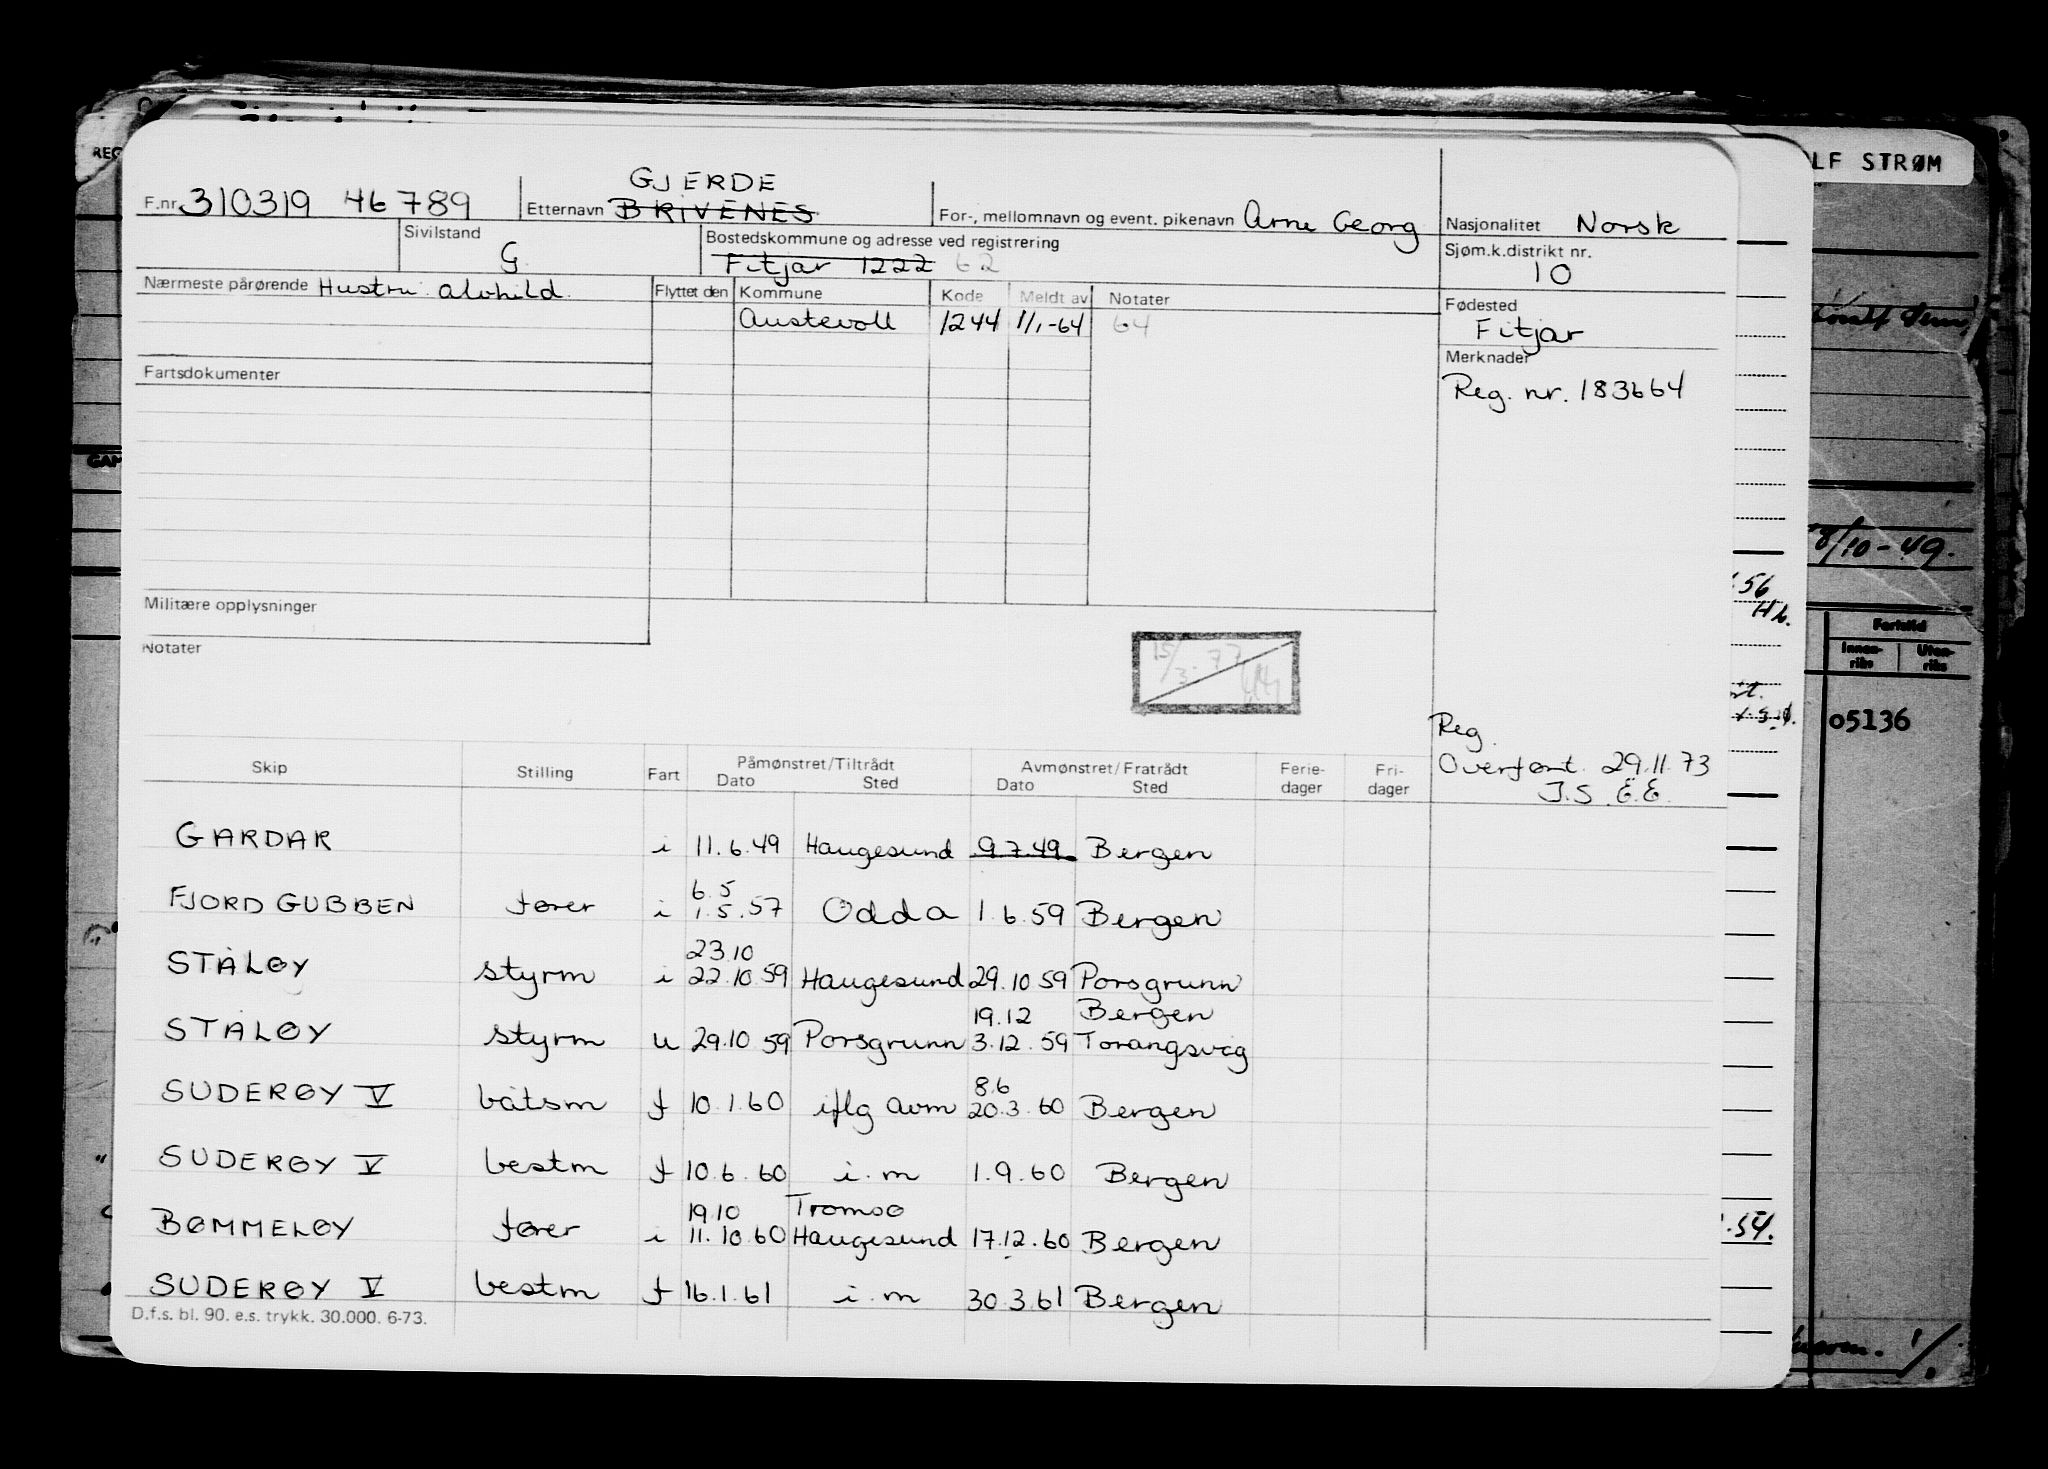 LF STRØM
REG
GJERDE
F.nr. 310319 46789 Etternavn BRIVENES For-, mellomnavn og event. pikenavn Arne Georg Nasjonalitet Norsk
Sivilstand G Bostedskommune og adresse ved registrering Sjøm.k.distrikt nr. 10
Fitjar 1222 62
Nærmeste pårørende Hustru: Alvhild. Flyttet den Kommune Kode Meldt av Notater Fødested
Austevoll 1244 1/1-64 64 Fitjar
Merknader
Fartsdokumenter Reg. nr. 183664
8/10-49.
56
Hb.
Militære opplysninger
Notater
15/3-77
Fartstid
Innen-riks Uten-riks
o5136
Reg.
Overført 29.11.73
J.S. E.E.
Skip Stilling Fart Påmønstret/Tiltrådt Avmønstret/Fratrådt Ferie-dager Fri-dager
Dato Sted Dato Sted
GARDAR i 11.6.49 Haugesund 9.7.49 Bergen
6.5
FJORD GUBBEN fører i 1.5.57 Odda 1.6.59 Bergen
23.10
STÅLØY styrm i 22.10.59 Haugesund 29.10.59 Porsgrunn
19.12 Bergen
STÅLØY styrm u 29.10.59 Porsgrunn 3.12.59 Torangsvåg
8.6
SUDERØY V båtsm f 10.1.60 iflg avm 20.3.60 Bergen
SUDERØY V bestm f 10.6.60 i.m 1.9.60 Bergen
19.10 Tromsø
BØMMELØY fører i 11.10.60 Haugesund 17.12.60 Bergen
.54.
SUDERØY V bestm f 16.1.61 i.m 30.3.61 Bergen
D.f.s. bl. 90. e.s. trykk. 30.000. 6-73.